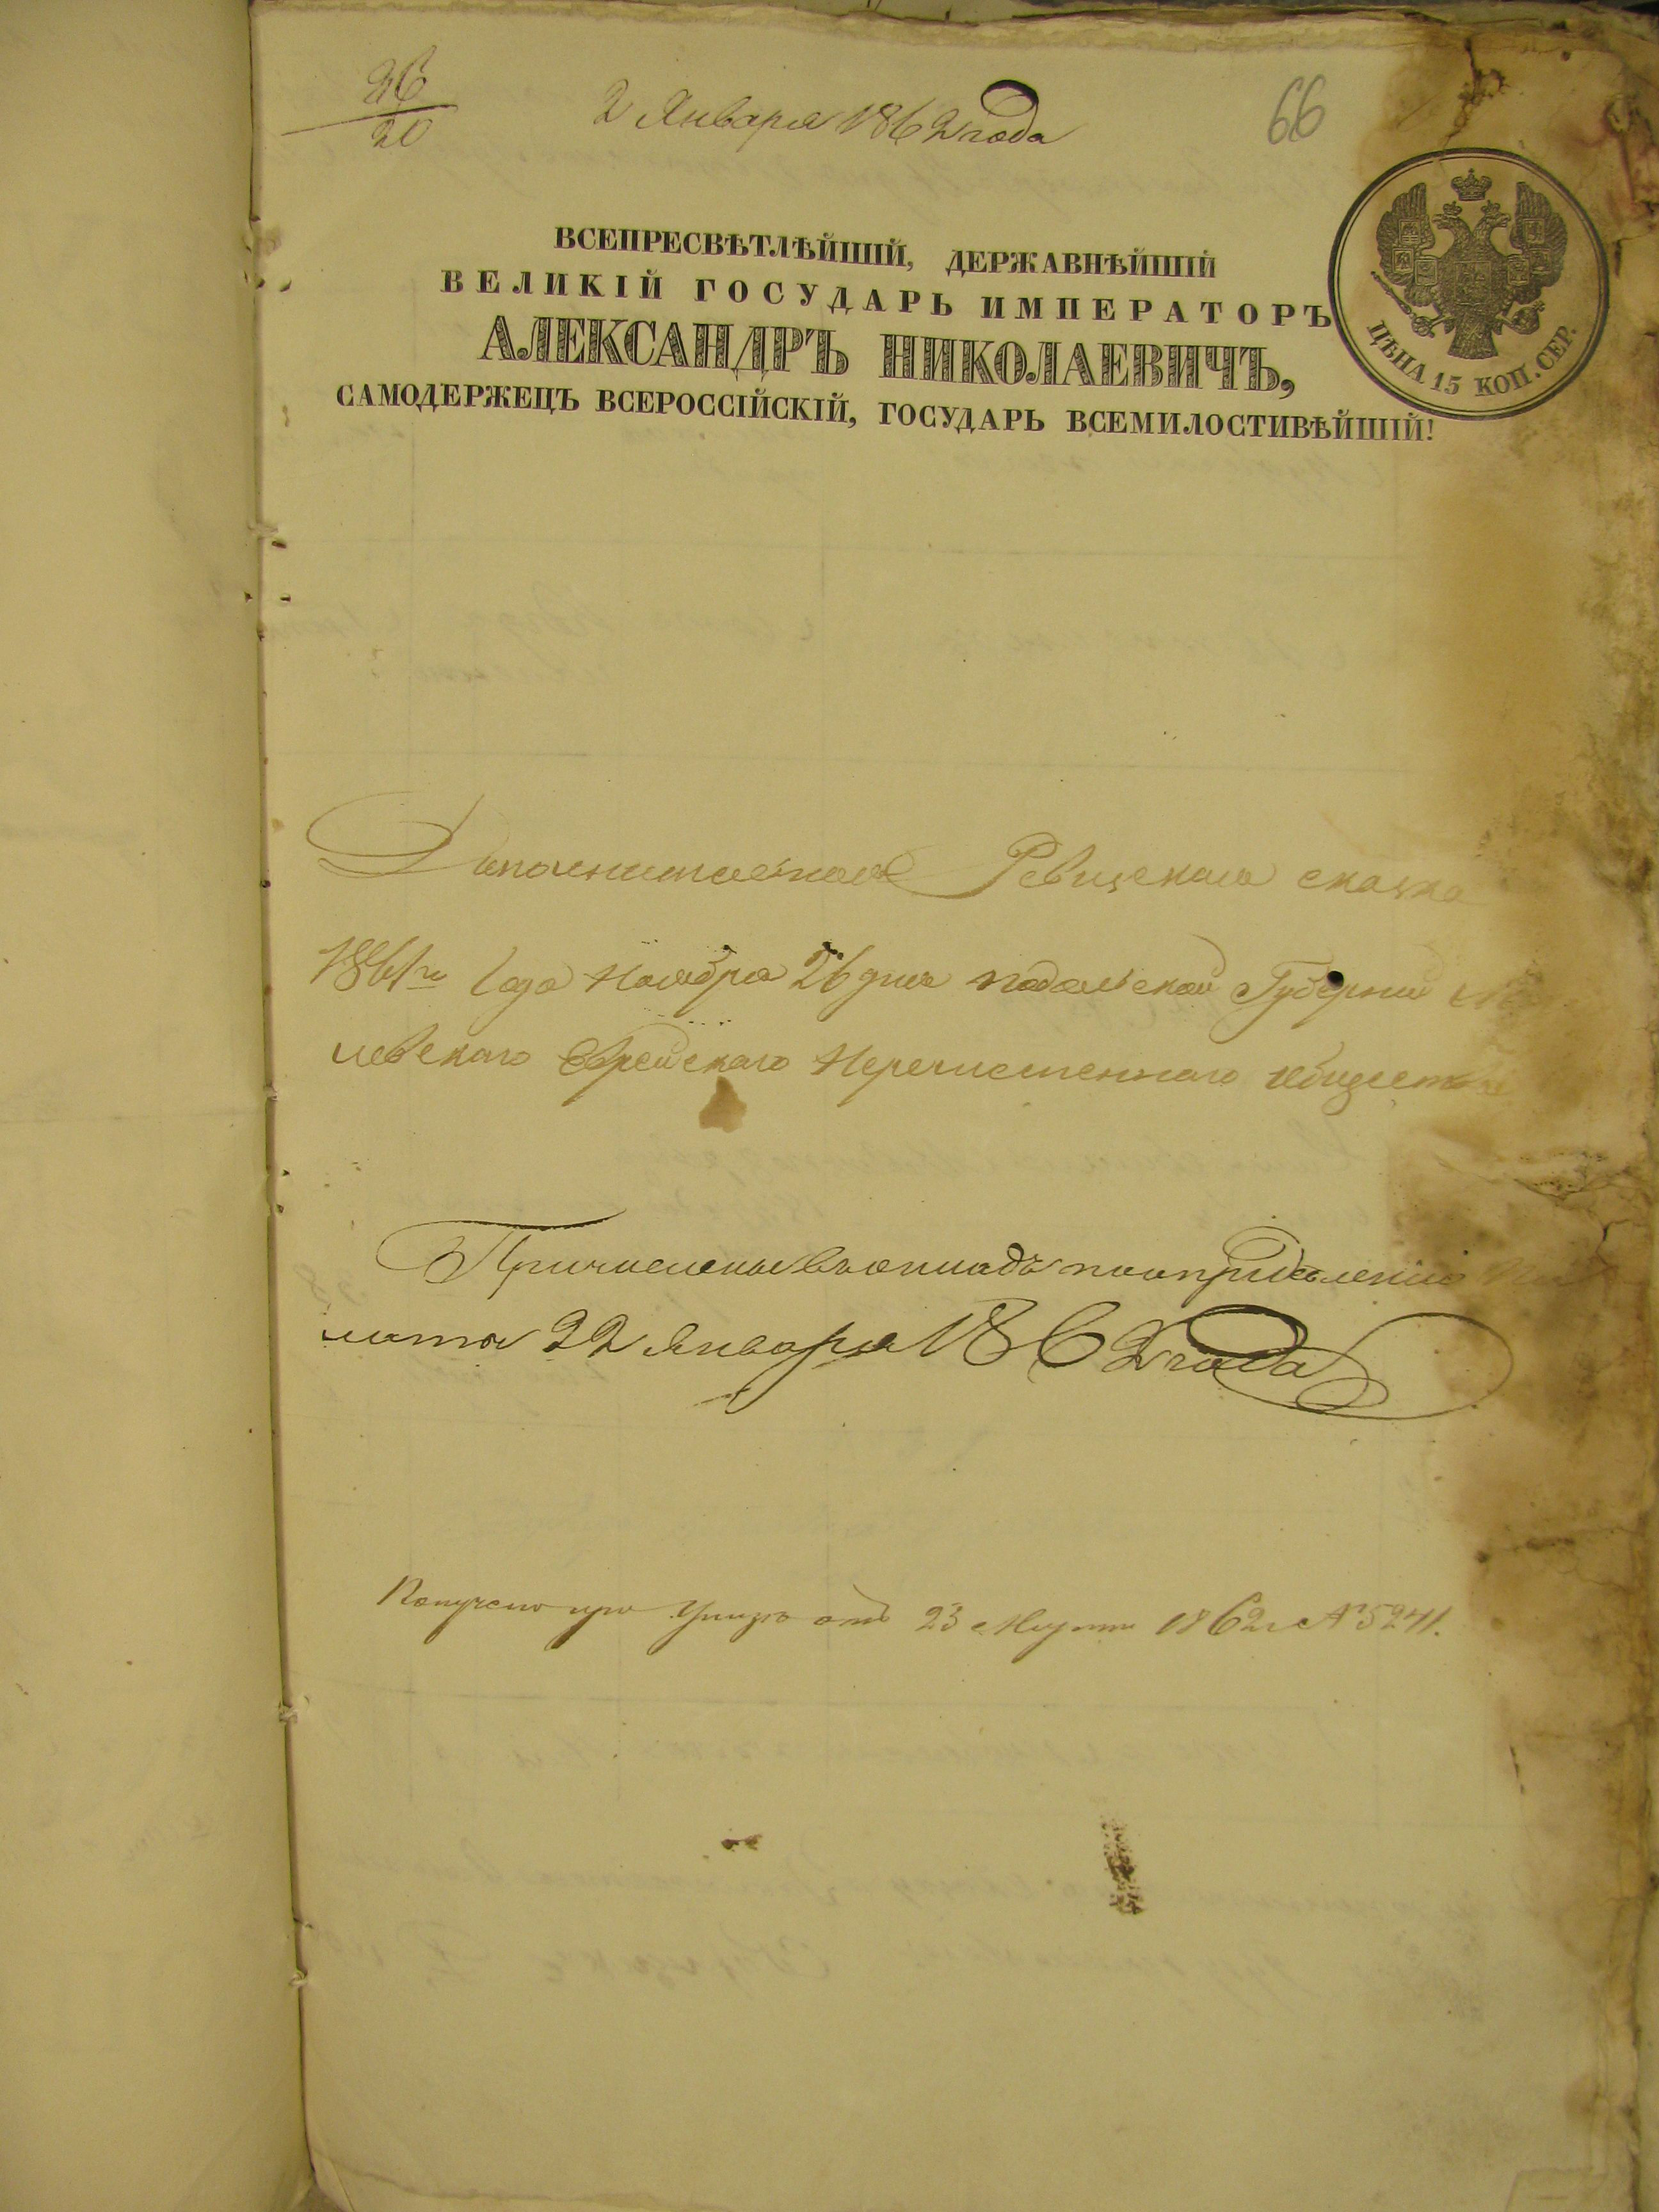 26
20
2 Января 1862 года
66
ВСЕПРЕСВѢТЛѢЙШІЙ, ДЕРЖАВНѢЙШІЙ
ВЕЛИКІЙ ГОСУДАРЬ ИМПЕРАТОРЪ
АЛЕКСАНДРЪ НИКОЛАЕВИЧЪ,
САМОДЕРЖЕЦЪ ВСЕРОССІЙСКІЙ, ГОСУДАРЬ ВСЕМИЛОСТИВѢЙШІЙ!
ЦѢНА 15 КОП. СЕР.
Дополнительная Ревизская сказка
1861го Года Ноября 26 дня Подольской Губерніи
левскаго Еврейскаго Перечисленнаго общества
Причислены въ окладъ по опредѣленію
латы 22 Января 1862 года
Получено при Указѣ отъ 23 Марта 1862 г № 5241.